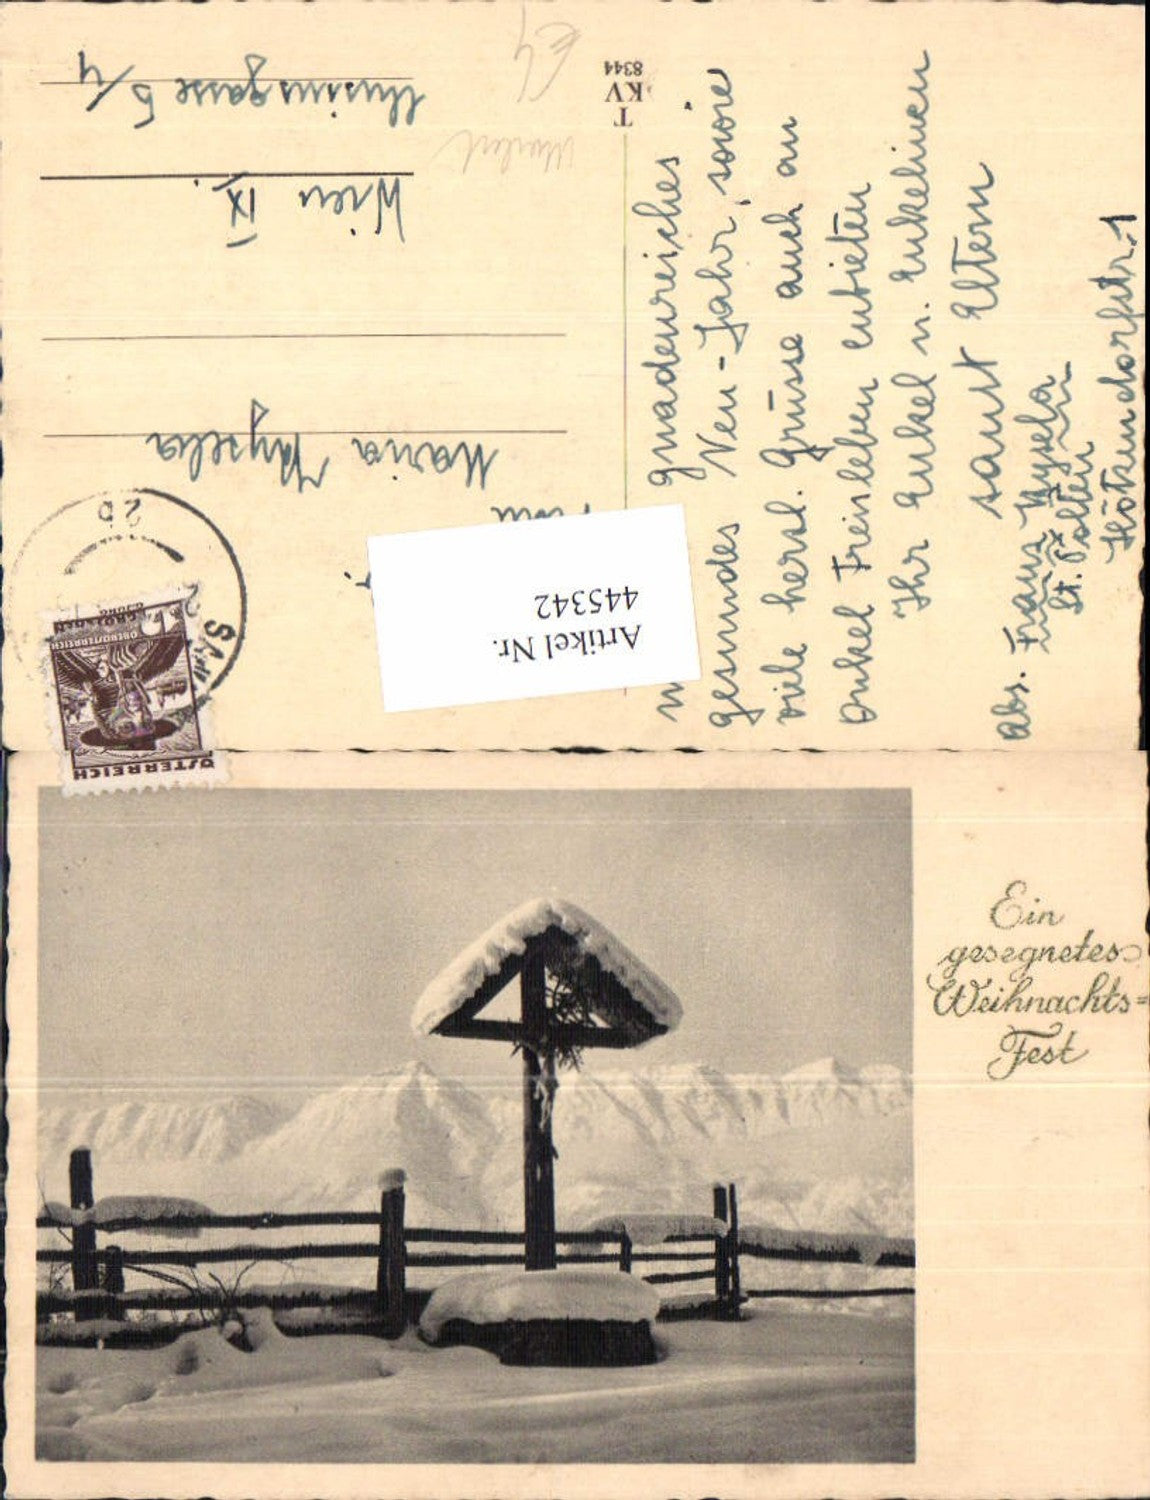 ÖSTERREICH
OBERÖSTERREICH
GROSCHEN
Artikel Nr.
445342
Maria Kysela
Wien IX.
Ausinsgasse 5/4
T
KV
8344
gnadenreiches
gesundes Neu-Jahr, sowie
viele herzl. Grüsse auch an
Onkel Freisleben entbieten
Ihr Enkel n. Enkelinen
samt Eltern
Abs. Franz Kysela
St. Pölten
Ein
gesegnetes
Weihnachts=
Fest